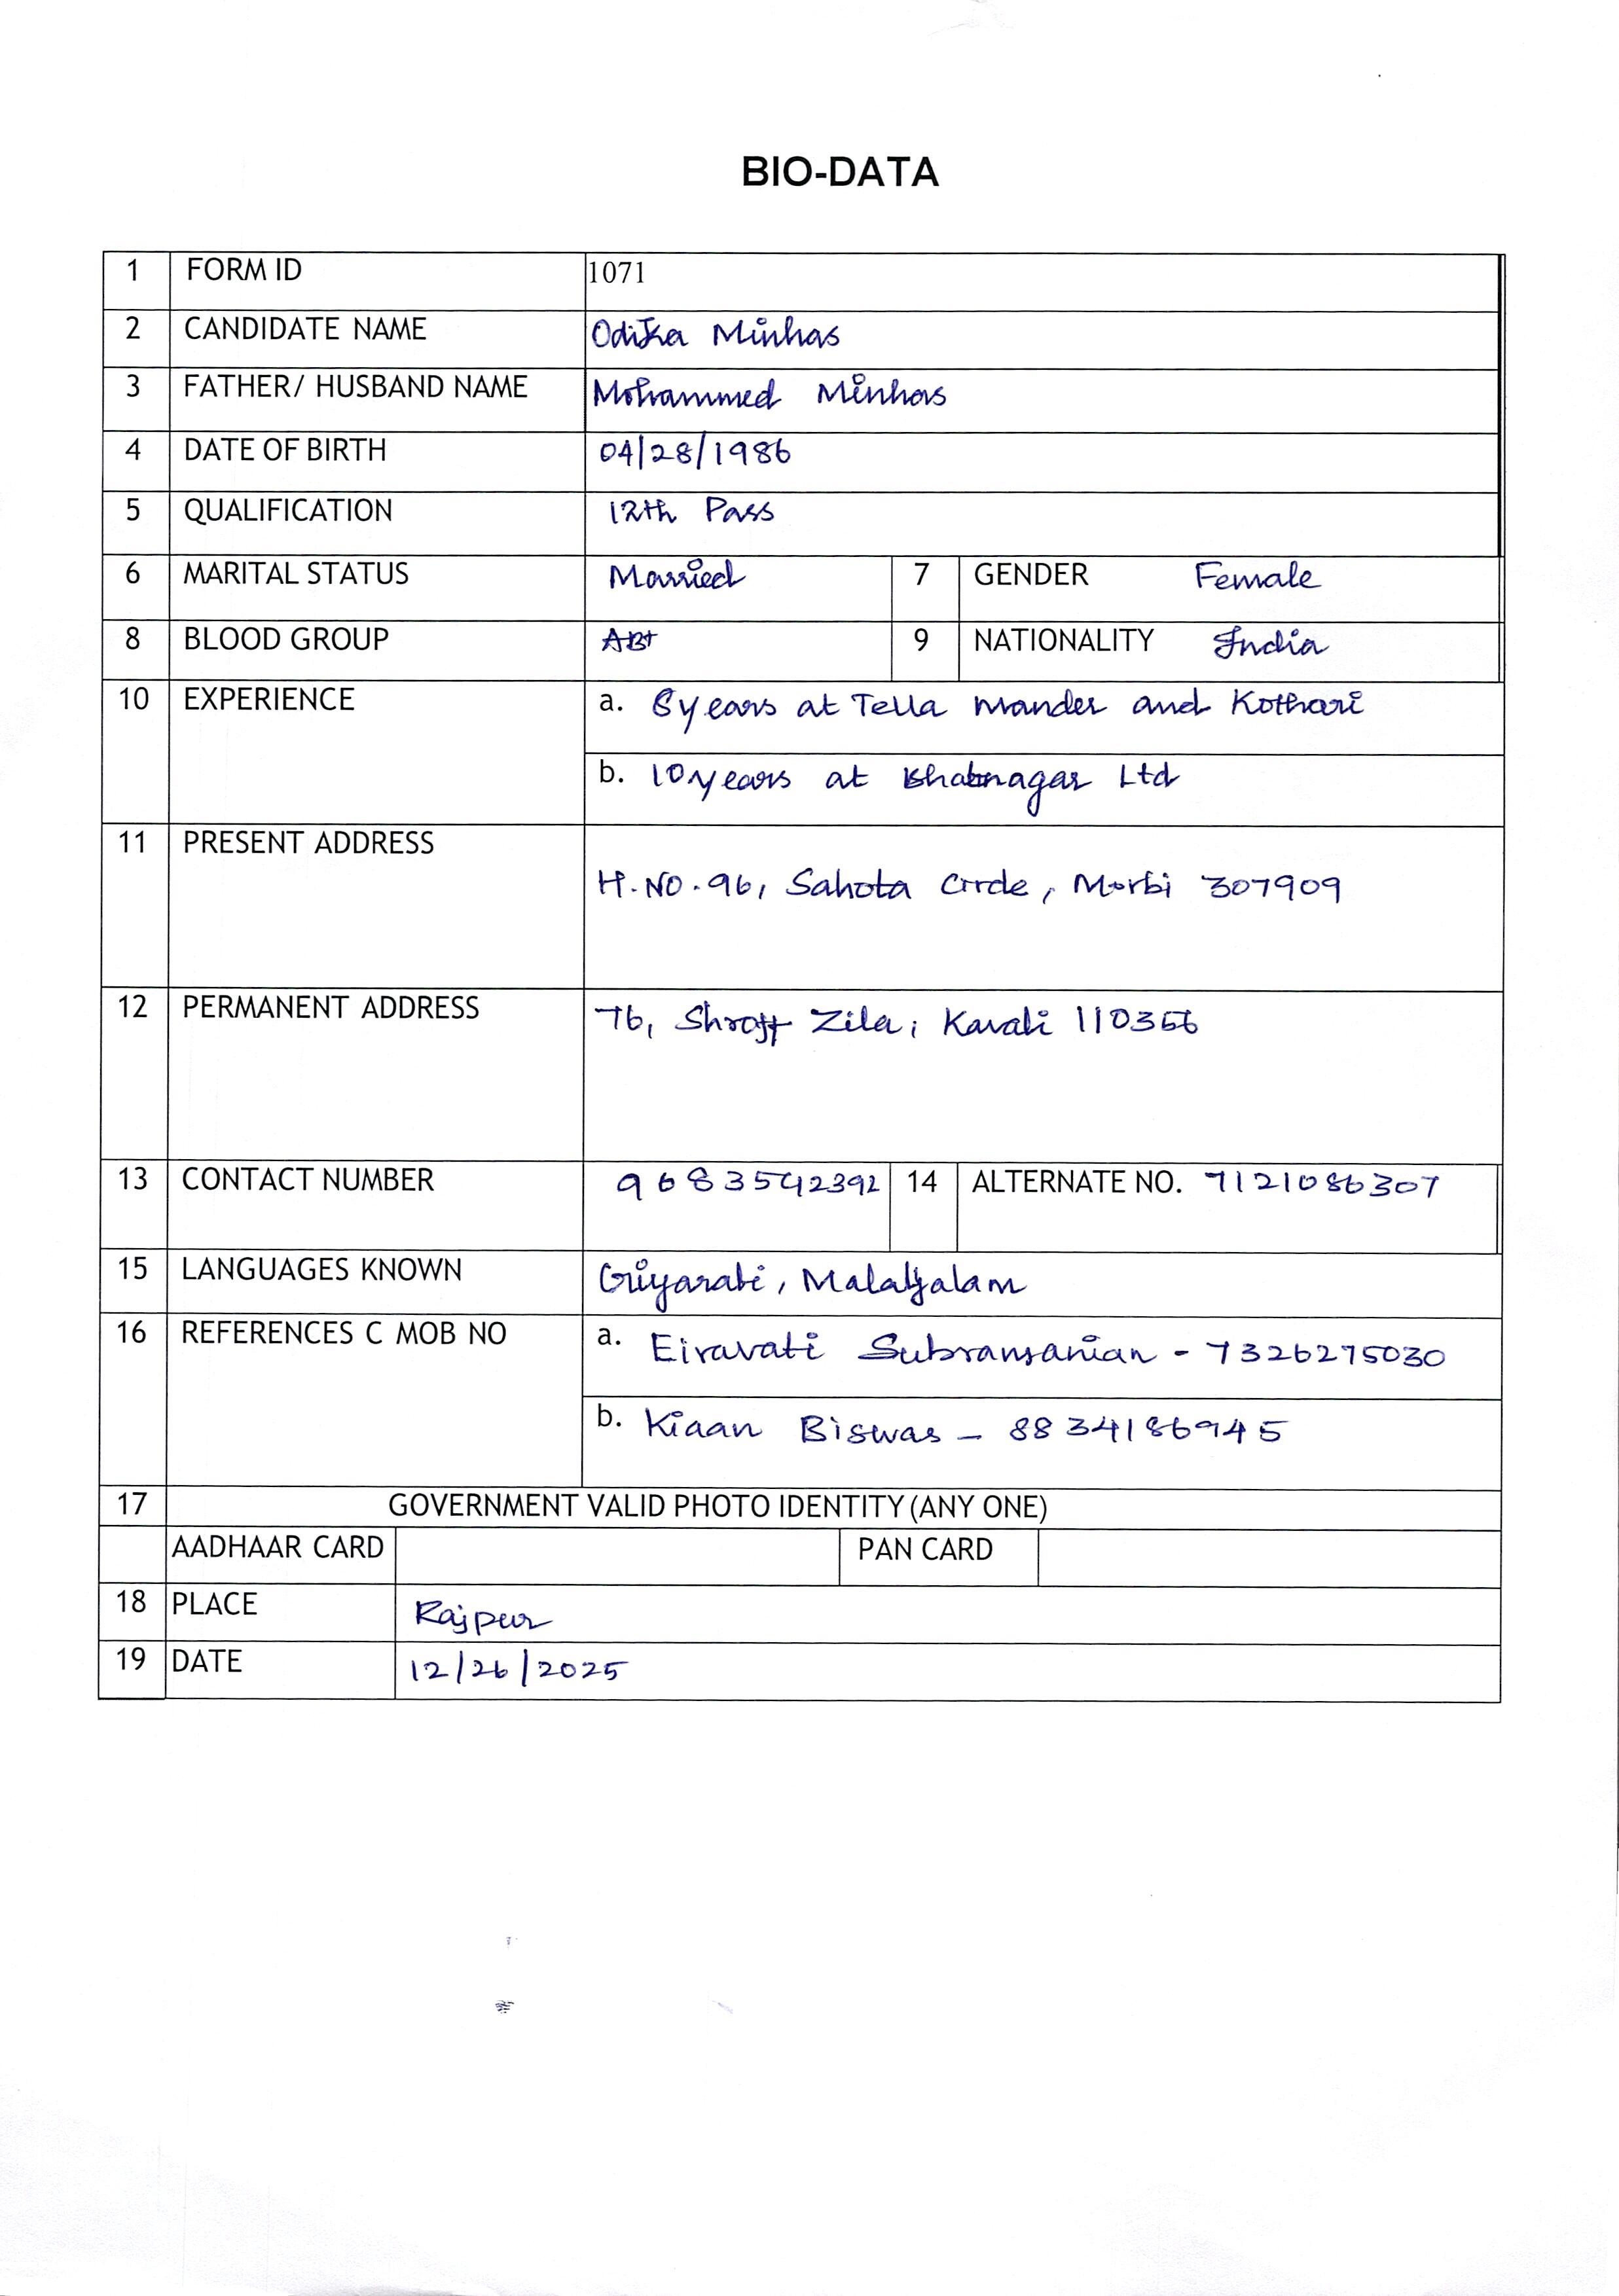 BIO-DATA
1 FORM ID 1071
2 CANDIDATE NAME Odika Minhas
3 FATHER/ HUSBAND NAME Mohammed Minhas
4 DATE OF BIRTH 04/28/1986
5 QUALIFICATION 12th Pass
6 MARITAL STATUS Married 7 GENDER Female
8 BLOOD GROUP AB+ 9 NATIONALITY India
10 EXPERIENCE a. years at Tella Mander and Kothari
b. 10 years at Bhatnagar Ltd
11 PRESENT ADDRESS
H.NO.96, Sahota Circle, Morbi 307909
12 PERMANENT ADDRESS 76, Shroff Zila, Kavali
13 CONTACT NUMBER 9683542392 14 ALTERNATE NO. 7121086307
15 LANGUAGES KNOWN Malalyalam
16 REFERENCES C MOB NO a. Eiravati Subramanian - 7326275030
b. Kiaan Biswas - 8834186945
17 GOVERNMENT VALID PHOTO IDENTITY (ANY ONE)
AADHAAR CARD PAN CARD
18 PLACE Rajpur
19 DATE 12/26/2025